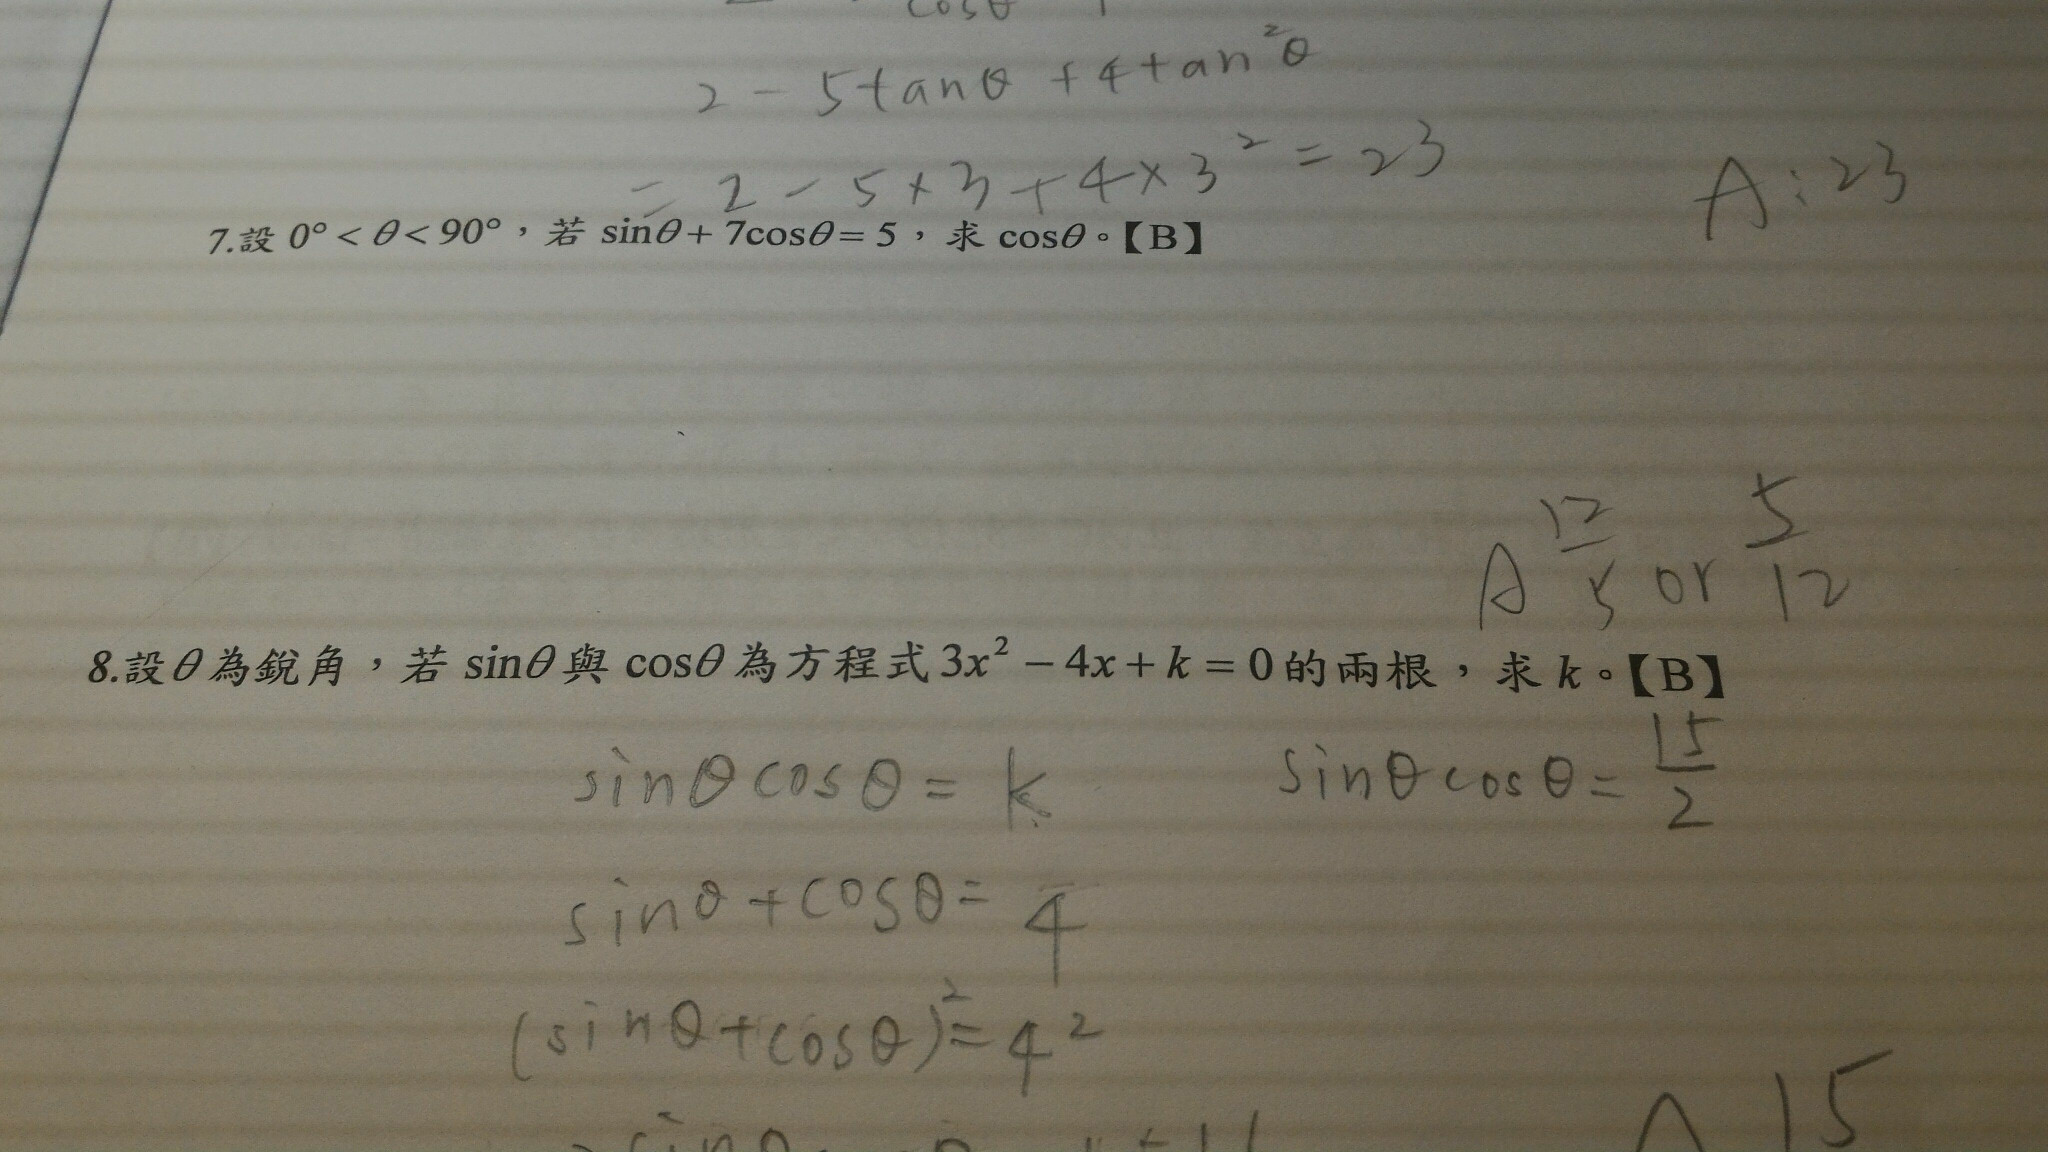 cosθ
2 - 5tanθ + 4tan²θ
= 2 - 5×3 + 4×3² = 23
A: 23
7.設 0° < θ < 90°，若 sinθ + 7cosθ = 5，求 cosθ。【B】
A 12/5 or 5/12
8.設θ為銳角，若 sinθ與 cosθ為方程式3x² - 4x + k = 0的兩根，求 k。【B】
sinθcosθ = k
sinθcosθ = 15/2
sinθ + cosθ = 4
(sinθ + cosθ)² = 4²
A 15